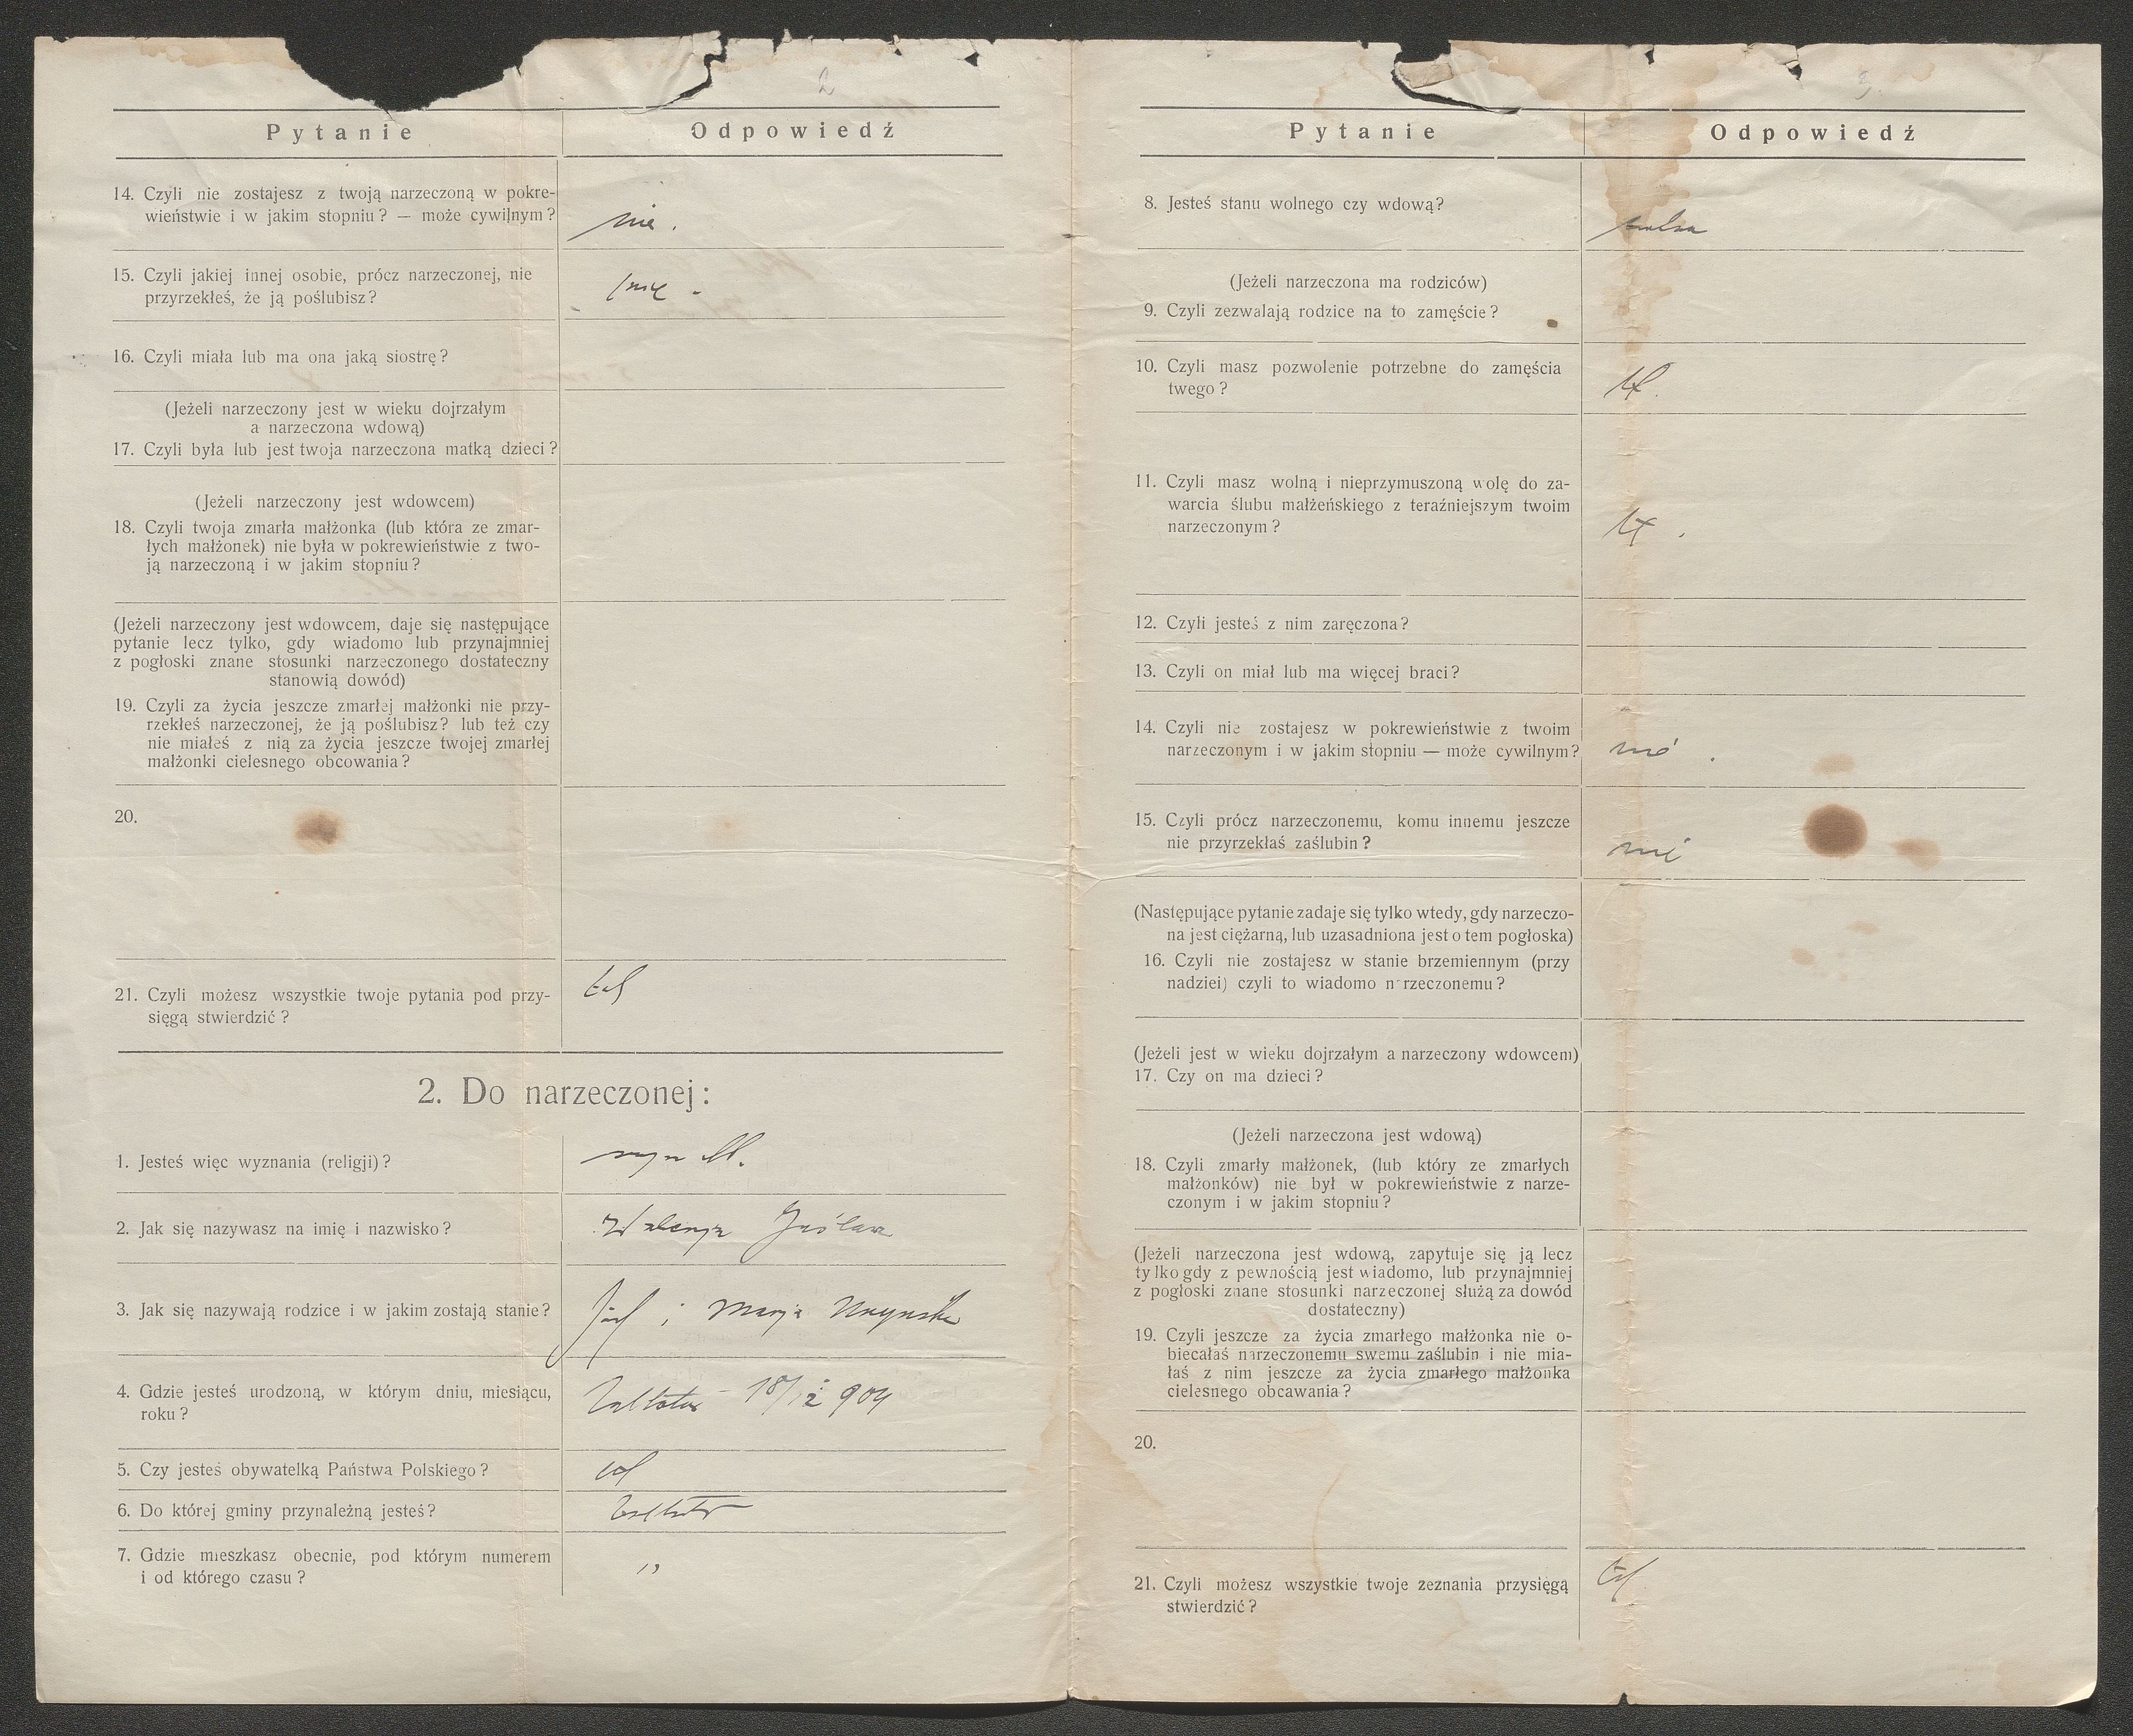 2
Pytanie
Odpowiedź
14. Czyli nie zostajesz z twoją narzeczoną w pokre-
wieństwie i w jakim stopniu? — może cywilnym?
nie.
15. Czyli jakiej innej osobie, prócz narzeczonej, nie
przyrzekłeś, że ją poślubisz?
nie -
16. Czyli miała lub ma ona jaką siostrę?
(Jeżeli narzeczony jest w wieku dojrzałym
a narzeczona wdową)
17. Czyli była lub jest twoja narzeczona matką dzieci?
(Jeżeli narzeczony jest wdowcem)
18. Czyli twoja zmarła małżonka (lub która ze zmar-
łych małżonek) nie była w pokrewieństwie z two-
ją narzeczoną i w jakim stopniu?
(Jeżeli narzeczony jest wdowcem, daje się następujące
pytanie lecz tylko, gdy wiadomo lub przynajmniej
z pogłoski znane stosunki narzeczonego dostateczny
stanowią dowód)
19. Czyli za życia jeszcze zmarłej małżonki nie przy-
rzekłeś narzeczonej, że ją poślubisz? lub też czy
nie miałeś z nią za życia jeszcze twojej zmarłej
małżonki cielesnego obcowania?
20.
21. Czyli możesz wszystkie twoje pytania pod przy-
sięgą stwierdzić?
tak
2. Do narzeczonej:
1. Jesteś więc wyznania (religji)?
2. Jak się nazywasz na imię i nazwisko?
3. Jak się nazywają rodzice i w jakim zostają stanie?
Józef i Marja
4. Gdzie jesteś urodzoną, w którym dniu, miesiącu,
roku?
18/12 904
5. Czy jesteś obywatelką Państwa Polskiego?
tak
6. Do której gminy przynależną jesteś?
7. Gdzie mieszkasz obecnie, pod którym numerem
i od którego czasu?
"
3.
Pytanie
Odpowiedź
8. Jesteś stanu wolnego czy wdową?
wolna
(Jeżeli narzeczona ma rodziców)
9. Czyli zezwalają rodzice na to zamęście?
10. Czyli masz pozwolenie potrzebne do zamęścia
twego?
tak.
11. Czyli masz wolną i nieprzymuszoną wolę do za-
warcia ślubu małżeńskiego z teraźniejszym twoim
narzeczonym?
tak.
12. Czyli jesteś z nim zaręczona?
13. Czyli on miał lub ma więcej braci?
14. Czyli nie zostajesz w pokrewieństwie z twoim
narzeczonym i w jakim stopniu — może cywilnym?
nie.
15. Czyli prócz narzeczonemu, komu innemu jeszcze
nie przyrzekłaś zaślubin?
nie
(Następujące pytanie zadaje się tylko wtedy, gdy narzeczo-
na jest ciężarną, lub uzasadniona jest o tem pogłoska)
16. Czyli nie zostajesz w stanie brzemiennym (przy
nadziei) czyli to wiadomo narzeczonemu?
(Jeżeli jest w wieku dojrzałym a narzeczony wdowcem)
17. Czy on ma dzieci?
(Jeżeli narzeczona jest wdową)
18. Czyli zmarły małżonek, (lub który ze zmarłych
małżonków) nie był w pokrewieństwie z narze-
czonym i w jakim stopniu?
(Jeżeli narzeczona jest wdową, zapytuje się ją lecz
tylko gdy z pewnością jest wiadomo, lub przynajmniej
z pogłoski znane stosunki narzeczonej służą za dowód
dostateczny)
19. Czyli jeszcze za życia zmarłego małżonka nie o-
biecałaś narzeczonemu swemu zaślubin i nie mia-
łaś z nim jeszcze za życia zmarłego małżonka
cielesnego obcawania?
20.
21. Czyli możesz wszystkie twoje zeznania przysięgą
stwierdzić?
tak